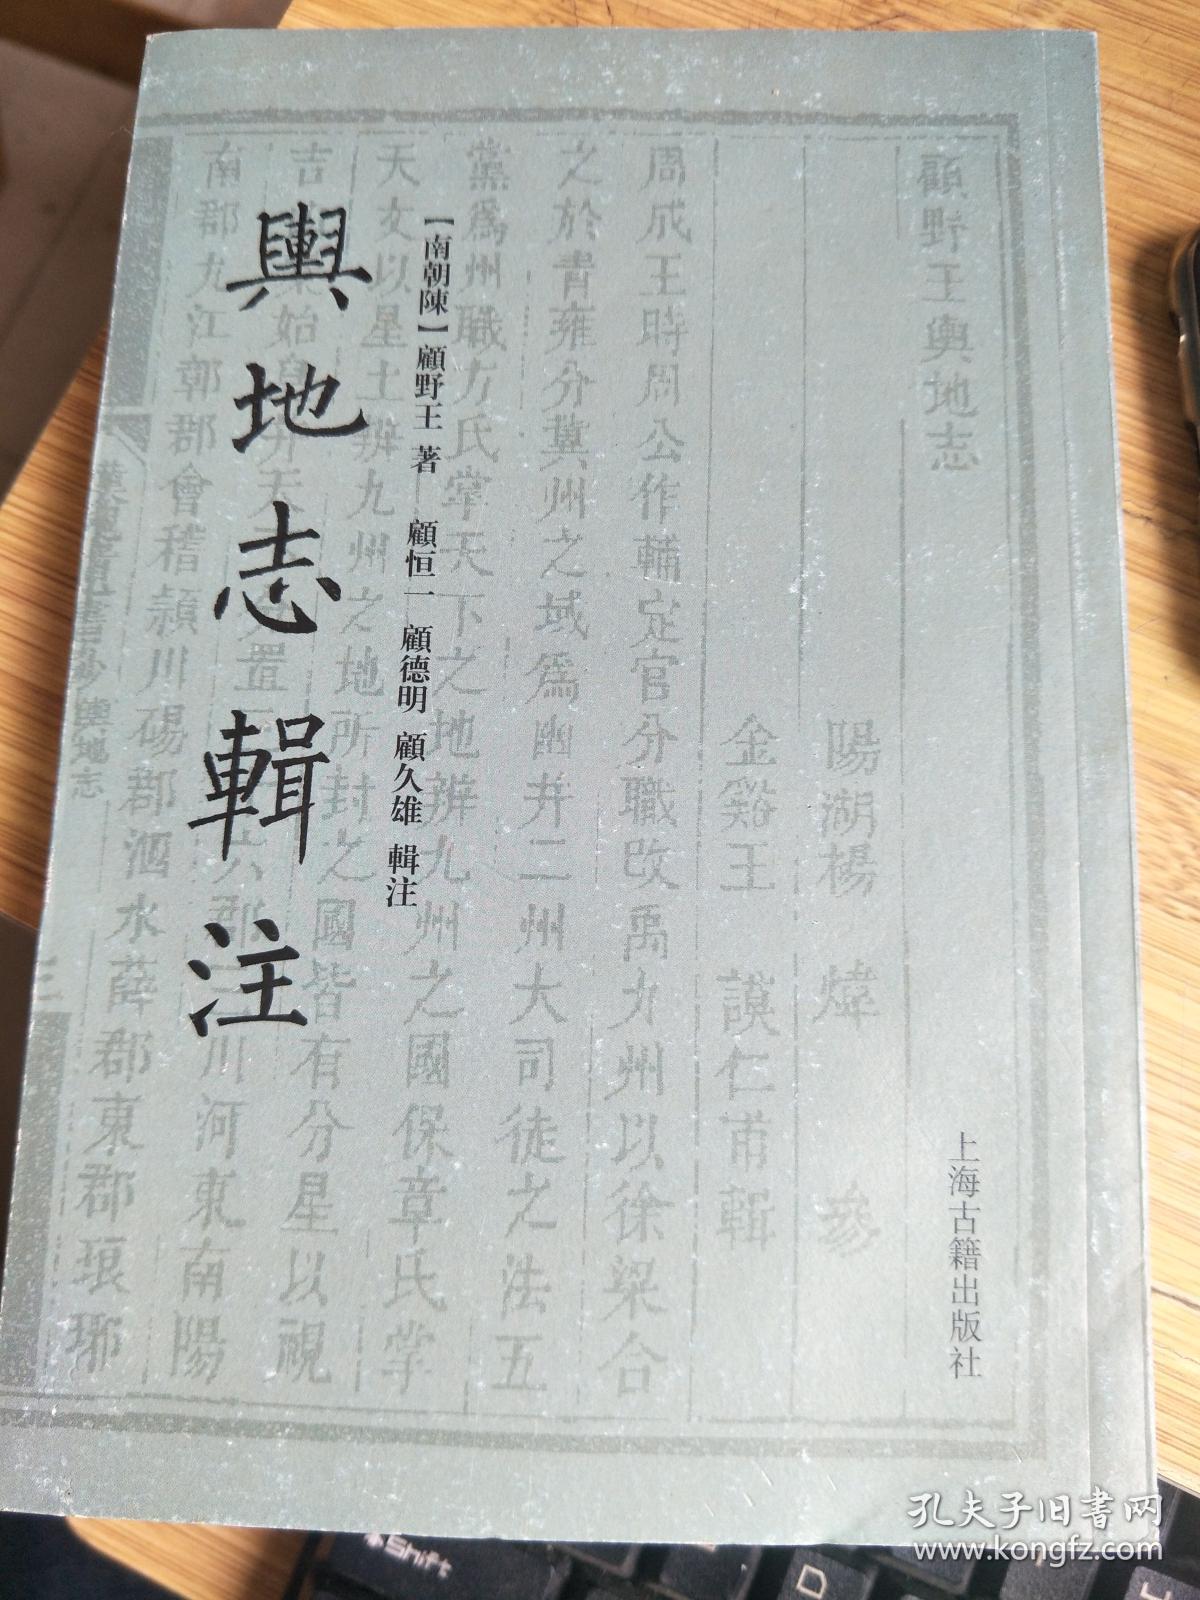 輿地志輯注
【南朝陳】顧野王 著 顧恒一 顧德明 顧久雄 輯注
上海古籍出版社
顧野王輿地志
陽湖楊 煒 參
金谿王 謨仁甫輯
周成王時周公作輔定官分職改禹九州以徐梁合
之於青雍分冀州之域爲幽并二州大司徒之法五
黨爲州職方氏掌天下之地辨九州之國保章氏掌
天文以星土辨九州之地所封之國皆有分星以視
吉
始
天
置
六郡
川河東南陽
南郡九江鄣郡會稽潁川碭郡泗水薛郡東郡琅琊
輿地志
孔夫子旧书网
www.kongfz.com
Shift
D